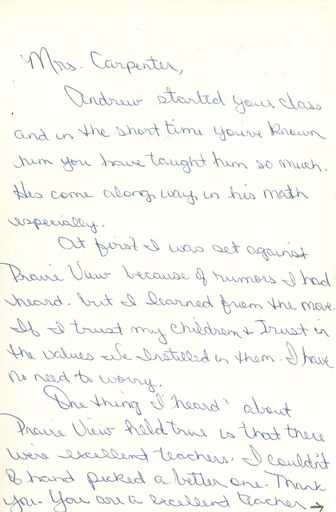 Mrs. Carpenter,
Andrew started your class
and in the short time you've known
him you have taught him so much.
Hes come along way, in his math
especially.
At first I was set against
Prairie View because of rumors I had
heard. but I learned from the move.
If I trust my children & Trust in
the values I've Instilled in them. I have
no need to worry.
One thing I 'heard' about
Prairie View held true is that there
were excellent teachers. I couldn't
of hand picked a better one. Thank
you. You are a excellent teacher →